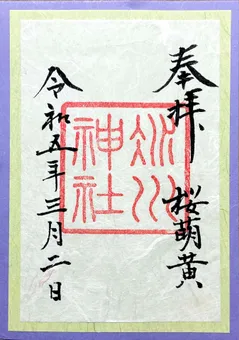 奉拝 桜萌黄
氷川
神社
令和五年三月二日